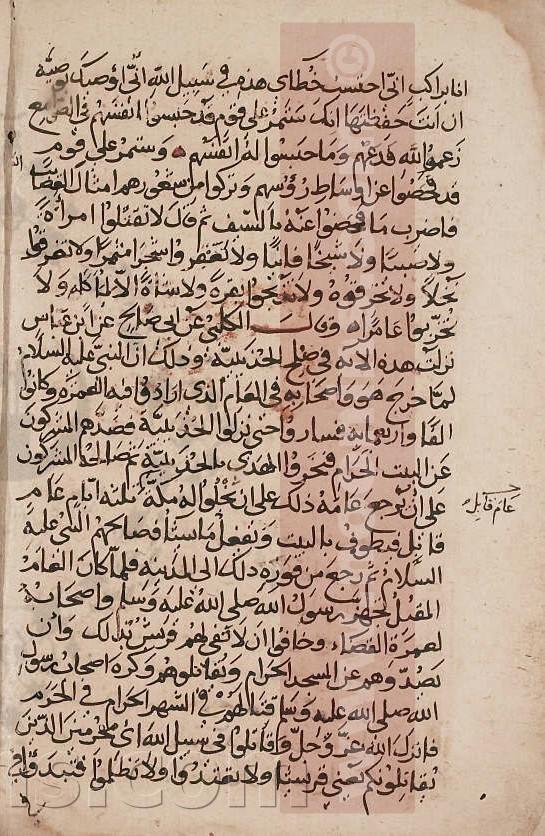 انا براكب انى احتسب خطاى هذه فى سبيل الله انى اوصيك بوصية
ان انت حفظتها انك ستمر على قوم قد حبسوا انفسهم فى الصوامع
زعموا لله فدعهم وما حبسوا له انفسهم وستمر على قوم
قد فحصوا عن اوساط رؤسهم وتركوا من شعورهم امثال العصائب
فاضرب ما فحصوا عنه بالسيف ثم قال لا تقتلوا امراة
ولا صبيا ولا شيخا فانيا ولا تعقروا شجرا مثمرا ولا تغرقوا
نخلا ولا تحرقوه ولا تذبحوا بقرة ولا شاة الا لماكله ولا
تخربوا عامرا وقال الكلبى عن ابى صالح عن ابن عباس
نزلت هذه الاية فى صلح الحديبية وذلك ان النبى عليه السلام
لما خرج هو واصحابه فى العام الذى اراد وافيه العمرة وكانوا
الفا واربعماية فساروا حتى نزلوا الحديبية فصدهم المشركون
عن البيت الحرام فنحروا الهدى بالحديبية ثم صالحه المشركون
على ان يرجع عامه ذلك على ان يخلوا له مكة ثلثه ايام عام
عام قابل
قابل فيطوف بالبيت ويفعل ما يشا فصالحهم النبى عليه
السلام ثم رجع من فوره ذلك الى المدينة فلما كان العام
المقبل تجهز رسول الله صلى الله عليه وسلم واصحابه
لعمرة القضاء وخافوا ان لا تفى لهم قريش بذلك وان
يصدوهم عن المسجد الحرام ويقاتلوهم وكره اصحاب رسول
الله صلى الله عليه وسلم قتالهم فى الشهر الحرام فى الحرم
فانزل الله عز وجل وقاتلوا فى سبيل الله اى محرمين الذين
يقاتلونكم يعنى قريشا ولا تعتدوا ولا تظلموا فتبدؤا فى